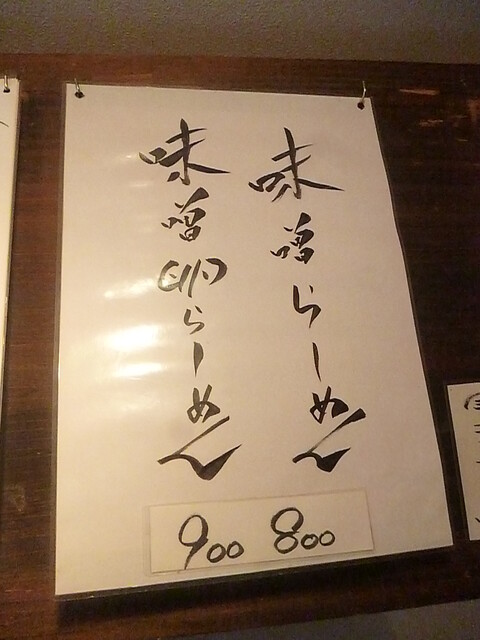 味噌らーめん
味噌卵らーめん
900 800